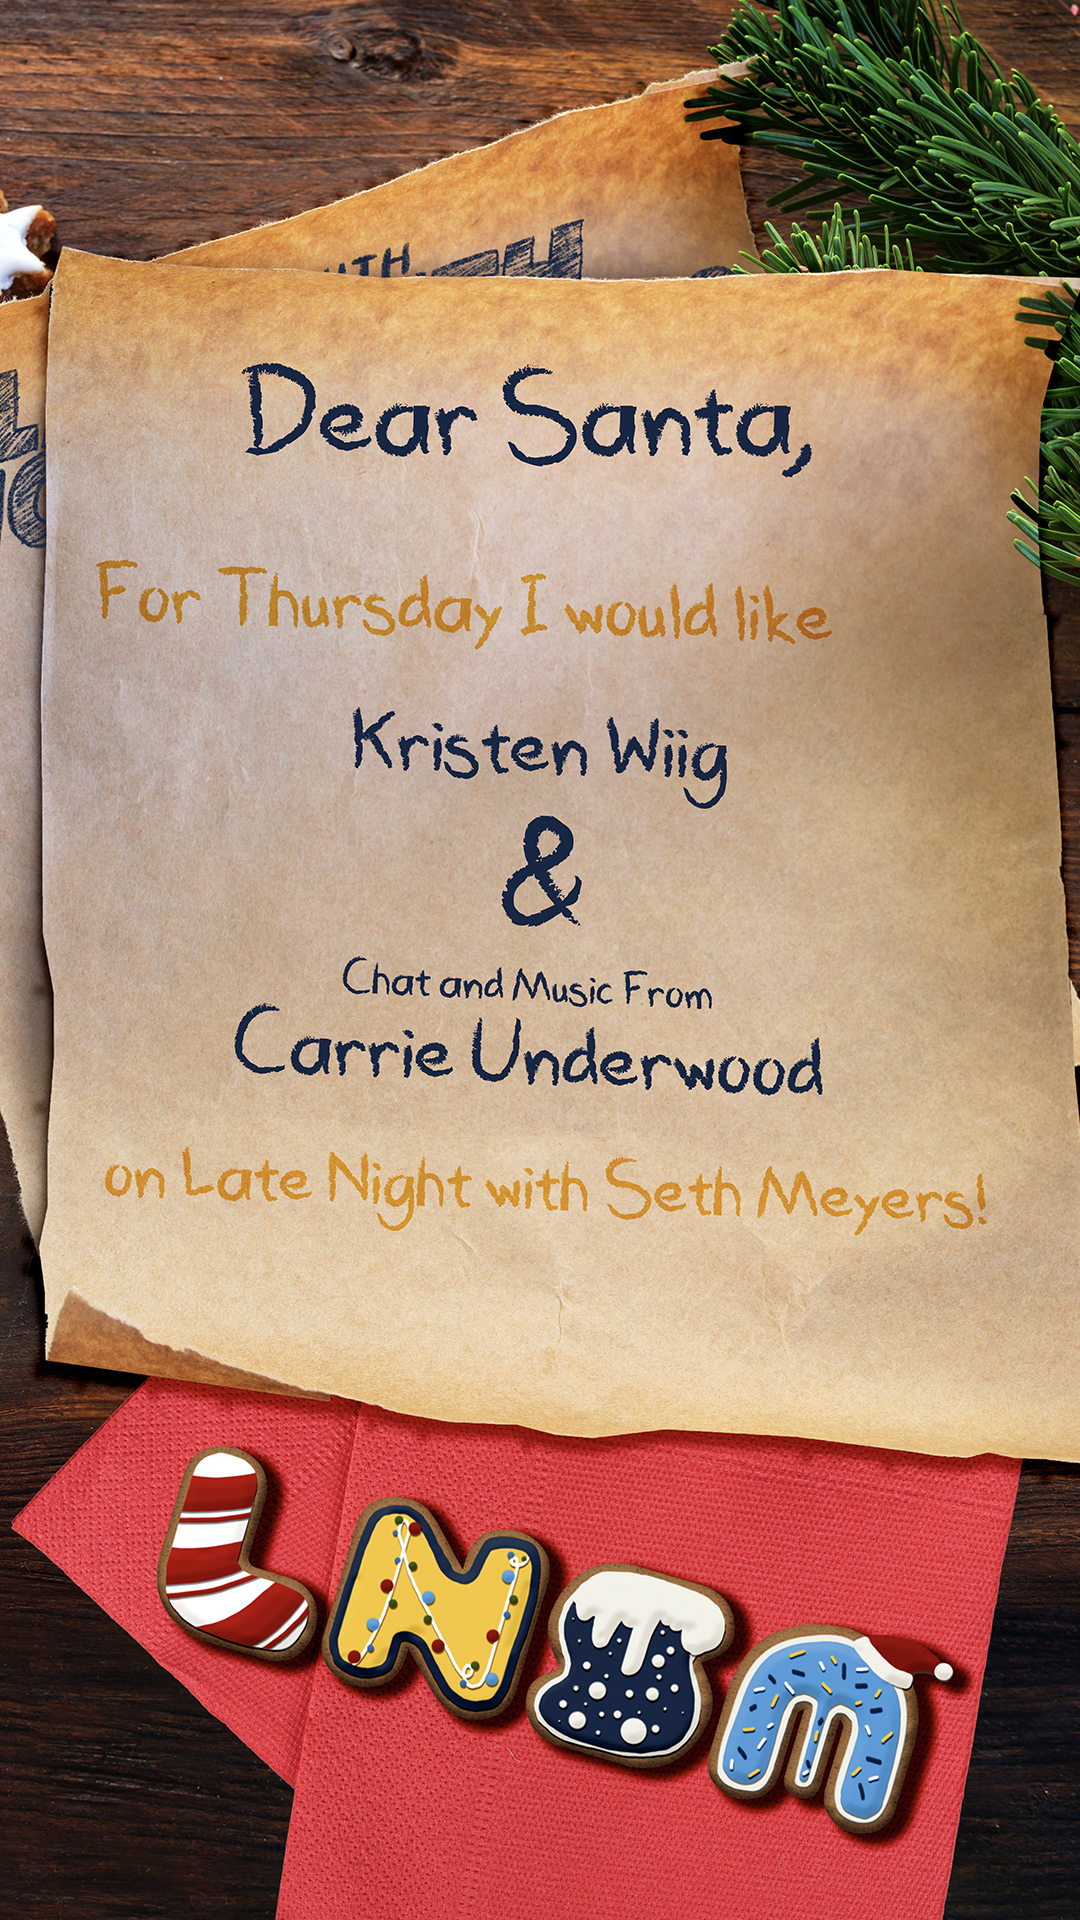 Dear Santa,
For Thursday I would like
Kristen Wiig
&
Chat and Music From
Carrie Underwood
on Late Night with Seth Meyers!
LNSM